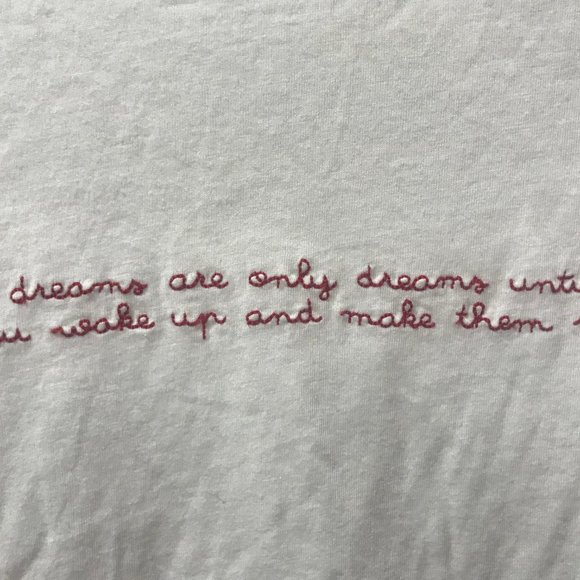 dreams are only dreams unti
u wake up and make them